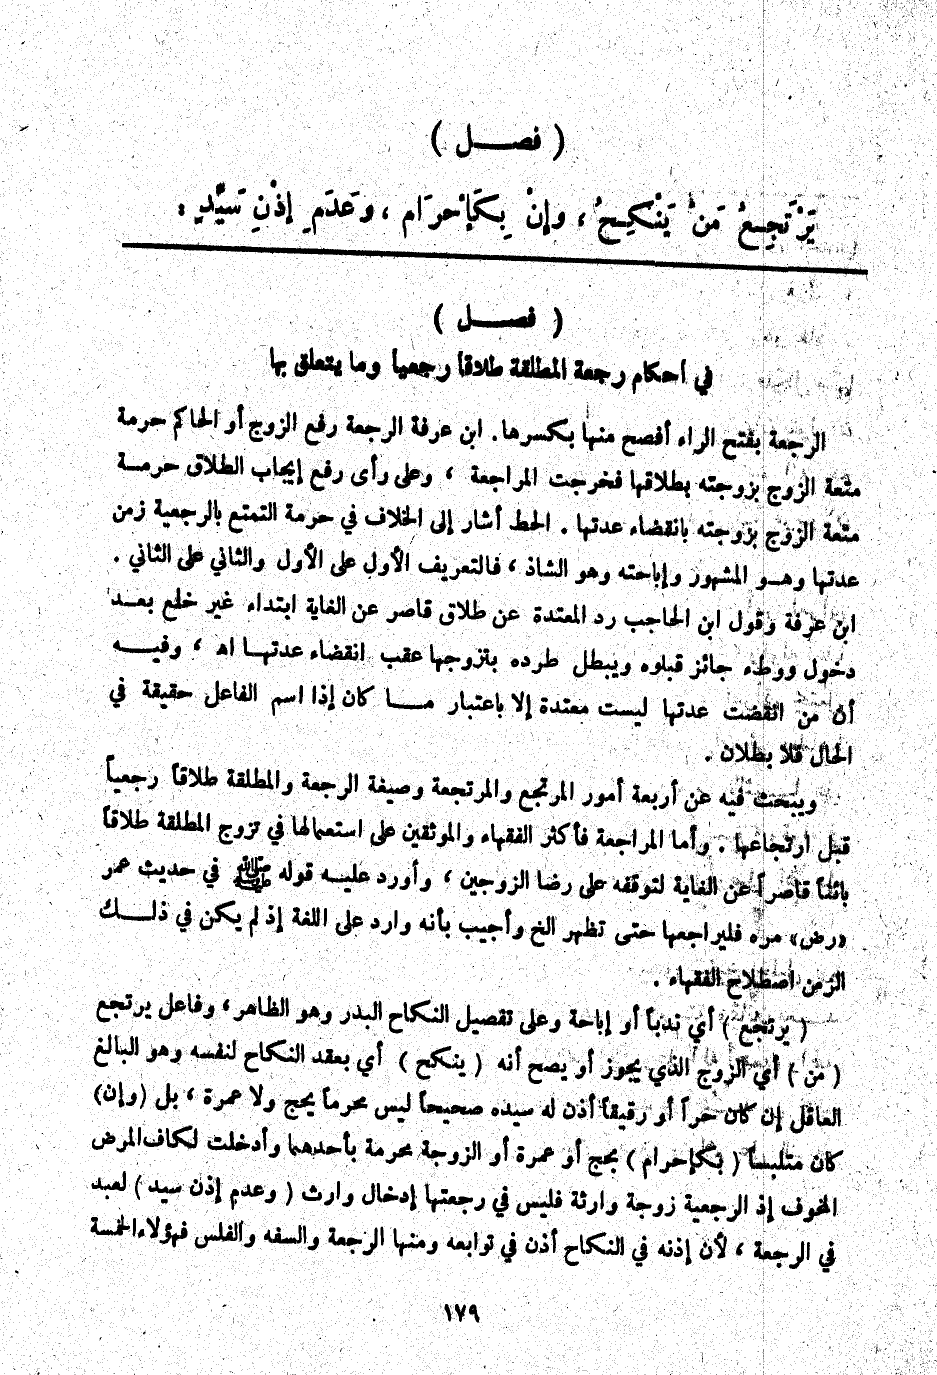 ( فصـــــل )
يَرْتَجِعُ مَنْ يَنْكِحُ ، وإنْ بِكَإحْرَامٍ ، وَعَدَمِ إذْنِ سَيِّدٍ :
( فصـــــل )
في أحكام رجعة المطلقة طلاقاً رجعياً وما يتعلق بها
الرجعة بفتح الراء أفصح منها بكسرها. ابن عرفة الرجعة رفع الزوج أو الحاكم حرمة
متعة الزوج بزوجته بطلاقها فخرجت المراجعة ، وعلى رأى رفع إيجاب الطلاق حرمــة
متعة الزوج بزوجته بانقضاء عدتها . الحط أشار إلى الخلاف في حرمة التمتع بالرجعية زمن
عدتها وهــو المشهور وإباحته وهو الشاذ ، فالتعريف الأول على الأول والثاني على الثاني .
ابن عرفة وقول ابن الحاجب رد المعتدة عن طلاق قاصر عن الغاية ابتداء غير خلع بعــد
دخول ووطء جائز قبلوه ويبطل طرده بتزوجها عقب انقضاء عدتهــا اه ، وفيـــه
أن من انقضت عدتها ليست معتدة إلا باعتبار مـــا كان إذا اسم الفاعل حقيقة في
الحال فلا بطلان .
ويبحث فيه عن أربعة أمور المرتجع والمرتجعة وصيغة الرجعة والمطلقة طلاقاً رجعياً
قبل ارتجاعها . وأما المراجعة فأكثر الفقهاء والموثقين على استعمالها في تزوج المطلقة طلاقاً
بائناً قاصراً عن الغاية لتوقفه على رضا الزوجين ، وأورد عليــه قوله ﷺ في حديث عمر
«رض» مره فليراجعها حتى تظهر الخ وأجيب بأنه وارد على اللغة إذ لم يكن في ذلـــك
الزمن اصطلاح الفقهاء .
( يرتجع ) أي ندباً أو إباحة وعلى تفصيل النكاح البدر وهو الظاهر ، وفاعل يرتجع
( من ) أي الزوج الذي يجوز أو يصح أنه ( ينكح ) أي بعقد النكاح لنفسه وهو البالغ
العاقل إن كان حراً أو رقيقاً أذن له سيده صحيحاً ليس محرماً بحج ولا عمرة ، بل (وإن)
كان متلبساً ( بكإحرام ) بحج أو عمرة أو الزوجة محرمة بأحدهما وأدخلت لكاف المرض
المخوف إذ الرجعية زوجة وارثة فليس في رجعتها إدخال وارث ( وعدم إذن سيد ) لعبد
في الرجعة ، لأن إذنه في النكاح أذن في توابعه ومنها الرجعة والسفه والفلس فهؤلاء الخمسة
١٧٩